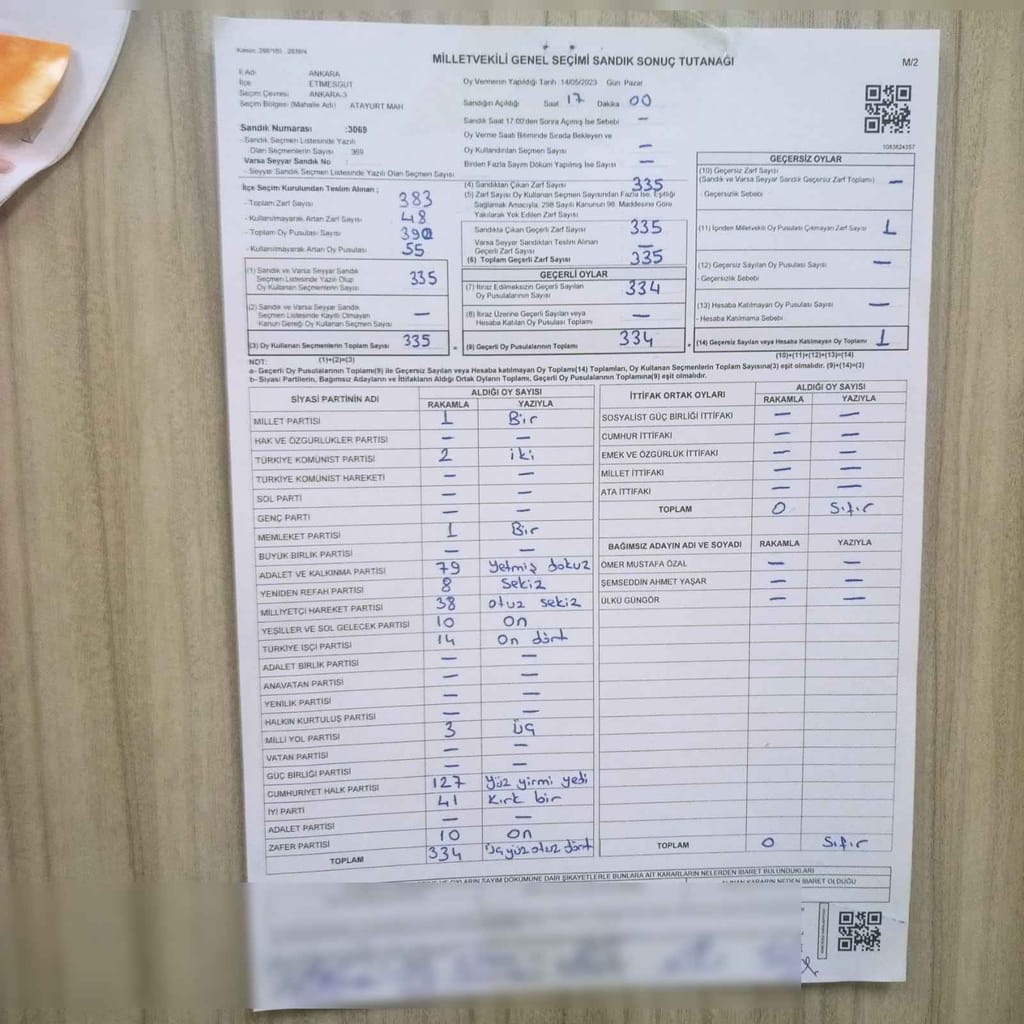 MİLLETVEKİLİ GENEL SEÇİMİ SANDIK SONUÇ TUTANAĞI
M/2
İl Adı ANKARA
İlçe ETİMESGUT
Seçim Çevresi ANKARA-3
Seçim Bölgesi (Mahalle Adı) ATAYURT MAH
Oy Vermenin Yapıldığı Tarih 14/05/2023 Gün Pazar
Sandığın Açıldığı Saat 17 Dakika 00
Sandık Saat 17:00'den Sonra Açılmış İse Sebebi —
Oy Verme Saati Bitiminde Sırada Bekleyen ve
Oy Kullandırılan Seçmen Sayısı —
Birden Fazla Sayım Döküm Yapılmış İse Sayısı —
Sandık Numarası :3069
- Sandık Seçmen Listesinde Yazılı
Olan Seçmenlerin Sayısı : 369
Varsa Seyyar Sandık No :
- Seyyar Sandık Listesinde Yazılı Olan Seçmen Sayısı
1083824357
İlçe Seçim Kurulundan Teslim Alınan ;
- Toplam Zarf Sayısı 383
- Kullanılmayarak Artan Zarf Sayısı 48
- Toplam Oy Pusulası Sayısı 390
- Kullanılmayarak Artan Oy Pusulası 55
(1) Sandık ve Varsa Seyyar Sandık
Seçmen Listesinde Yazılı Olup
Oy Kullanan Seçmenlerin Sayısı 335
(2) Sandık ve Varsa Seyyar Sandık
Seçmen Listesinde Kayıtlı Olmayan
Kanun Gereği Oy Kullanan Seçmen Sayısı —
(3) Oy Kullanan Seçmenlerin Toplam Sayısı 335
(1)+(2)=(3)
(4) Sandıktan Çıkan Zarf Sayısı 335
(5) Zarf Sayısı Oy Kullanan Seçmen Sayısından Fazla İse, Eşitliği
Sağlamak Amacıyla, 298 Sayılı Kanunun 98. Maddesine Göre
Yakılarak Yok Edilen Zarf Sayısı
Sandıkta Çıkan Geçerli Zarf Sayısı 335
Varsa Seyyar Sandıktan Teslim Alınan
Geçerli Zarf Sayısı —
(6) Toplam Geçerli Zarf Sayısı 335
GEÇERLİ OYLAR
(7) İtiraz Edilmeksizin Geçerli Sayılan
Oy Pusulalarının Sayısı 334
(8) İtiraz Üzerine Geçerli Sayılan veya
Hesaba Katılan Oy Pusulası Toplamı —
= (9) Geçerli Oy Pusulalarının Toplamı 334
GEÇERSİZ OYLAR
(10) Geçersiz Zarf Sayısı
(Sandık ve Varsa Seyyar Sandık Geçersiz Zarf Toplamı) —
- Geçersizlik Sebebi
(11) İçinden Milletvekili Oy Pusulası Çıkmayan Zarf Sayısı 1
(12) Geçersiz Sayılan Oy Pusulası Sayısı —
- Geçersizlik Sebebi
(13) Hesaba Katılmayan Oy Pusulası Sayısı —
- Hesaba Katılmama Sebebi
+ (14) Geçersiz Sayılan veya Hesaba Katılmayan Oy Toplamı 1
(10)+(11)+(12)+(13)=(14)
NOT:
a- Geçerli Oy Pusulalarının Toplamı(9) ile Geçersiz Sayılan veya Hesaba katılmayan Oy Toplamı(14) Toplamları, Oy Kullanan Seçmenlerin Toplam Sayısına(3) eşit olmalıdır. (9)+(14)=(3)
b- Siyasi Partilerin, Bağımsız Adayların ve İttifakların Aldığı Ortak Oyların Toplamı, Geçerli Oy Pusulalarının Toplamına(9) eşit olmalıdır.
SİYASİ PARTİNİN ADI ALDIĞI OY SAYISI
RAKAMLA YAZIYLA
MİLLET PARTİSİ 1 Bir
HAK VE ÖZGÜRLÜKLER PARTİSİ — —
TÜRKİYE KOMÜNİST PARTİSİ 2 iki
TÜRKİYE KOMÜNİST HAREKETİ — —
SOL PARTİ — —
GENÇ PARTİ — —
MEMLEKET PARTİSİ 1 Bir
BÜYÜK BİRLİK PARTİSİ — —
ADALET VE KALKINMA PARTİSİ 79 Yetmiş dokuz
YENİDEN REFAH PARTİSİ 8 Sekiz
MİLLİYETÇİ HAREKET PARTİSİ 38 otuz sekiz
YEŞİLLER VE SOL GELECEK PARTİSİ 10 On
TÜRKİYE İŞÇİ PARTİSİ 14 On dört
ADALET BİRLİK PARTİSİ — —
ANAVATAN PARTİSİ — —
YENİLİK PARTİSİ — —
HALKIN KURTULUŞ PARTİSİ — —
MİLLİ YOL PARTİSİ 3 üç
VATAN PARTİSİ — —
GÜÇ BİRLİĞİ PARTİSİ — —
CUMHURİYET HALK PARTİSİ 127 Yüz yirmi yedi
İYİ PARTİ 41 Kırk bir
ADALET PARTİSİ — —
ZAFER PARTİSİ 10 On
TOPLAM 334 üçyüz otuz dört
İTTİFAK ORTAK OYLARI ALDIĞI OY SAYISI
RAKAMLA YAZIYLA
SOSYALİST GÜÇ BİRLİĞİ İTTİFAKI — —
CUMHUR İTTİFAKI — —
EMEK VE ÖZGÜRLÜK İTTİFAKI — —
MİLLET İTTİFAKI — —
ATA İTTİFAKI — —
TOPLAM 0 Sıfır
BAĞIMSIZ ADAYIN ADI VE SOYADI RAKAMLA YAZIYLA
ÖMER MUSTAFA ÖZAL — —
ŞEMSEDDİN AHMET YAŞAR — —
ÜLKÜ GÜNGÖR — —
TOPLAM 0 Sıfır
OYLARIN SAYIM DÖKÜMÜNE DAİR ŞİKAYETLERLE BUNLARA AİT KARARLARIN NELERDEN İBARET BULUNDUKLARI
KARARIN NEDEN İBARET OLDUĞU